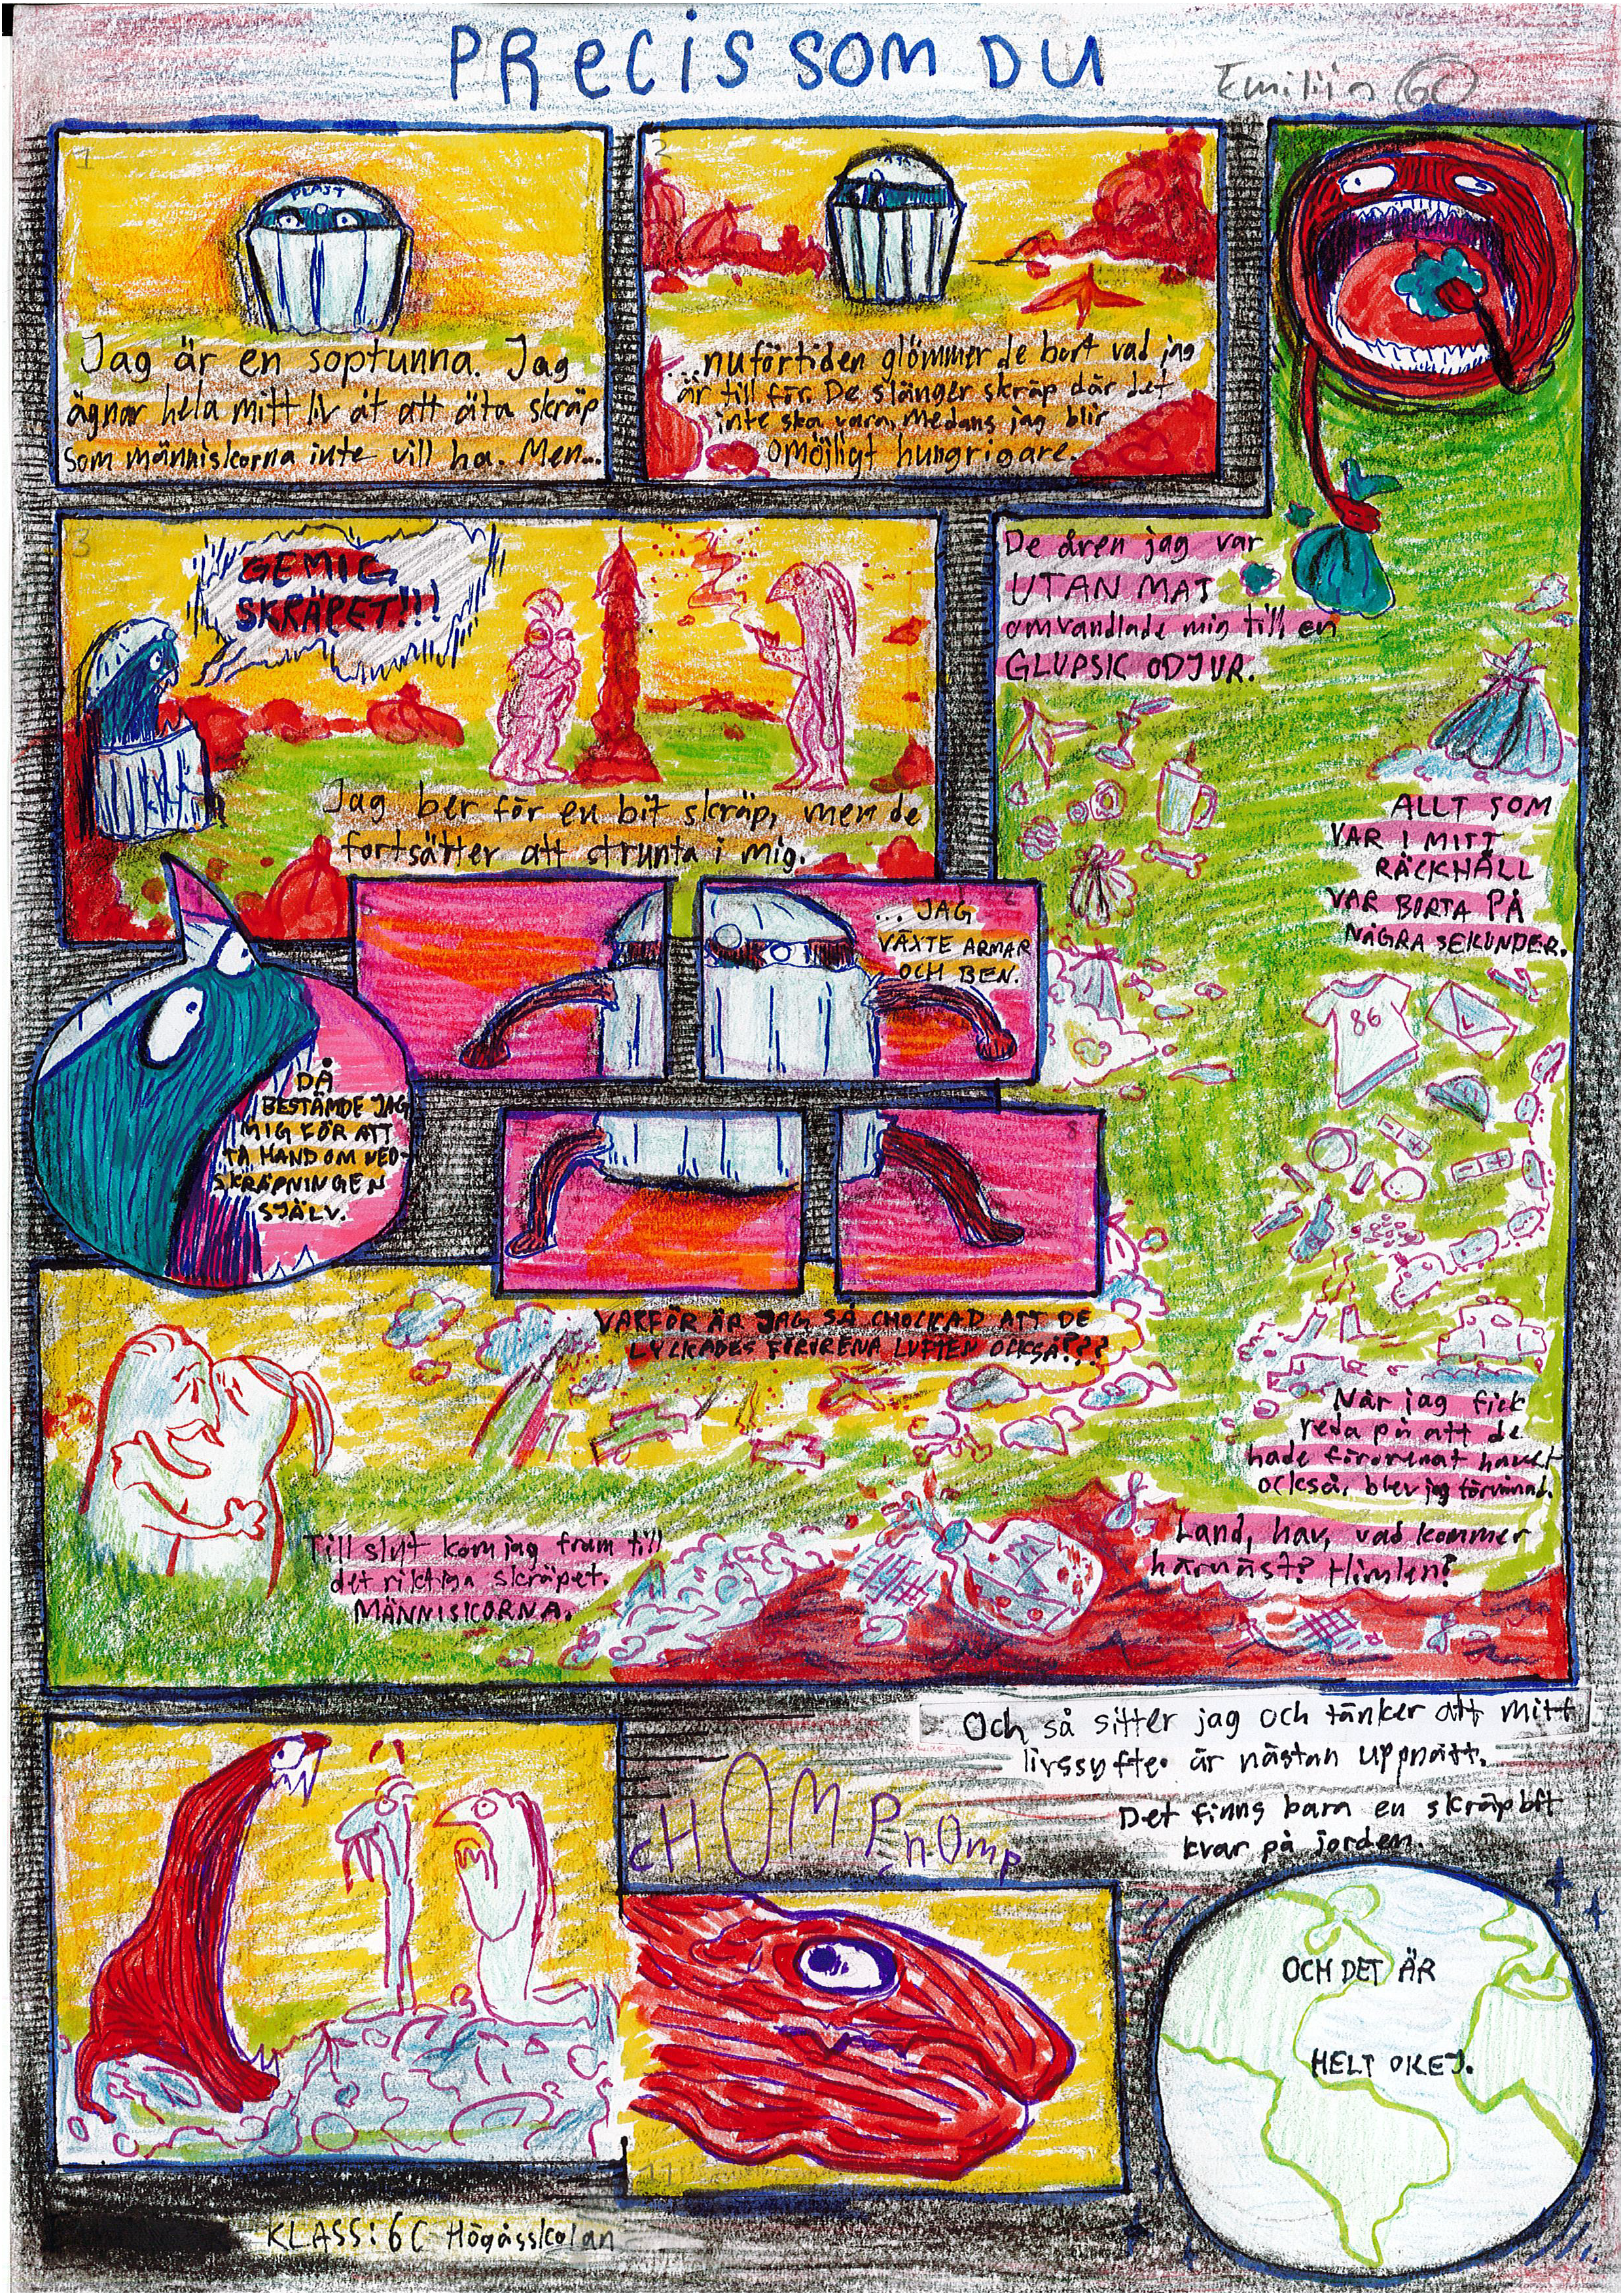 PRECIS SOM DU
Emilija 6C
1
PLAST
Jag är en soptunna. Jag
ägnar hela mitt liv åt att äta skräp
som människorna inte vill ha. Men...
2
...nuförtiden glömmer de bort vad jag
är till för. De slänger skräp där det
inte ska vara, medans jag blir
omöjligt hungrigare.
3
GE MIG
SKRÄPET!!!
Jag ber för en bit skräp, men de
fortsätter att strunta i mig.
DÅ
BESTÄMDE JAG
MIG FÖR ATT
TA HAND OM NED-
SKRÄPNINGEN
SJÄLV.
... JAG
VÄXTE ARMAR
OCH BEN.
8
De åren jag var
UTAN MAT
omvandlade mig till en
GLUPSK ODJUR.
ALLT SOM
VAR I MITT
RÄCKHÅLL
VAR BORTA PÅ
NÅGRA SEKUNDER.
86
När jag fick
reda på att de
hade förorenat havet
också, blev jag förvånad.
Land, hav, vad kommer
härnäst? Himlen?
VARFÖR ÄR JAG SÅ CHOCKAD ATT DE
LYCKADES FÖRORENA LUFTEN OCKSÅ???
Till slut kom jag fram till
det riktiga skräpet.
MÄNNISKORNA.
10
CHOMP
chOmp
11
Och så sitter jag och tänker att mitt
livssyfte är nästan uppnått.
Det finns bara en skräpbit
kvar på jorden.
OCH DET ÄR
HELT OKEJ.
KLASS: 6C Högåsskolan